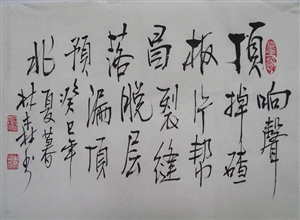 頂板冒落預兆
响聲
掉碴
片帮
裂缝
脱层
漏頂
癸巳年
夏暮
林森书